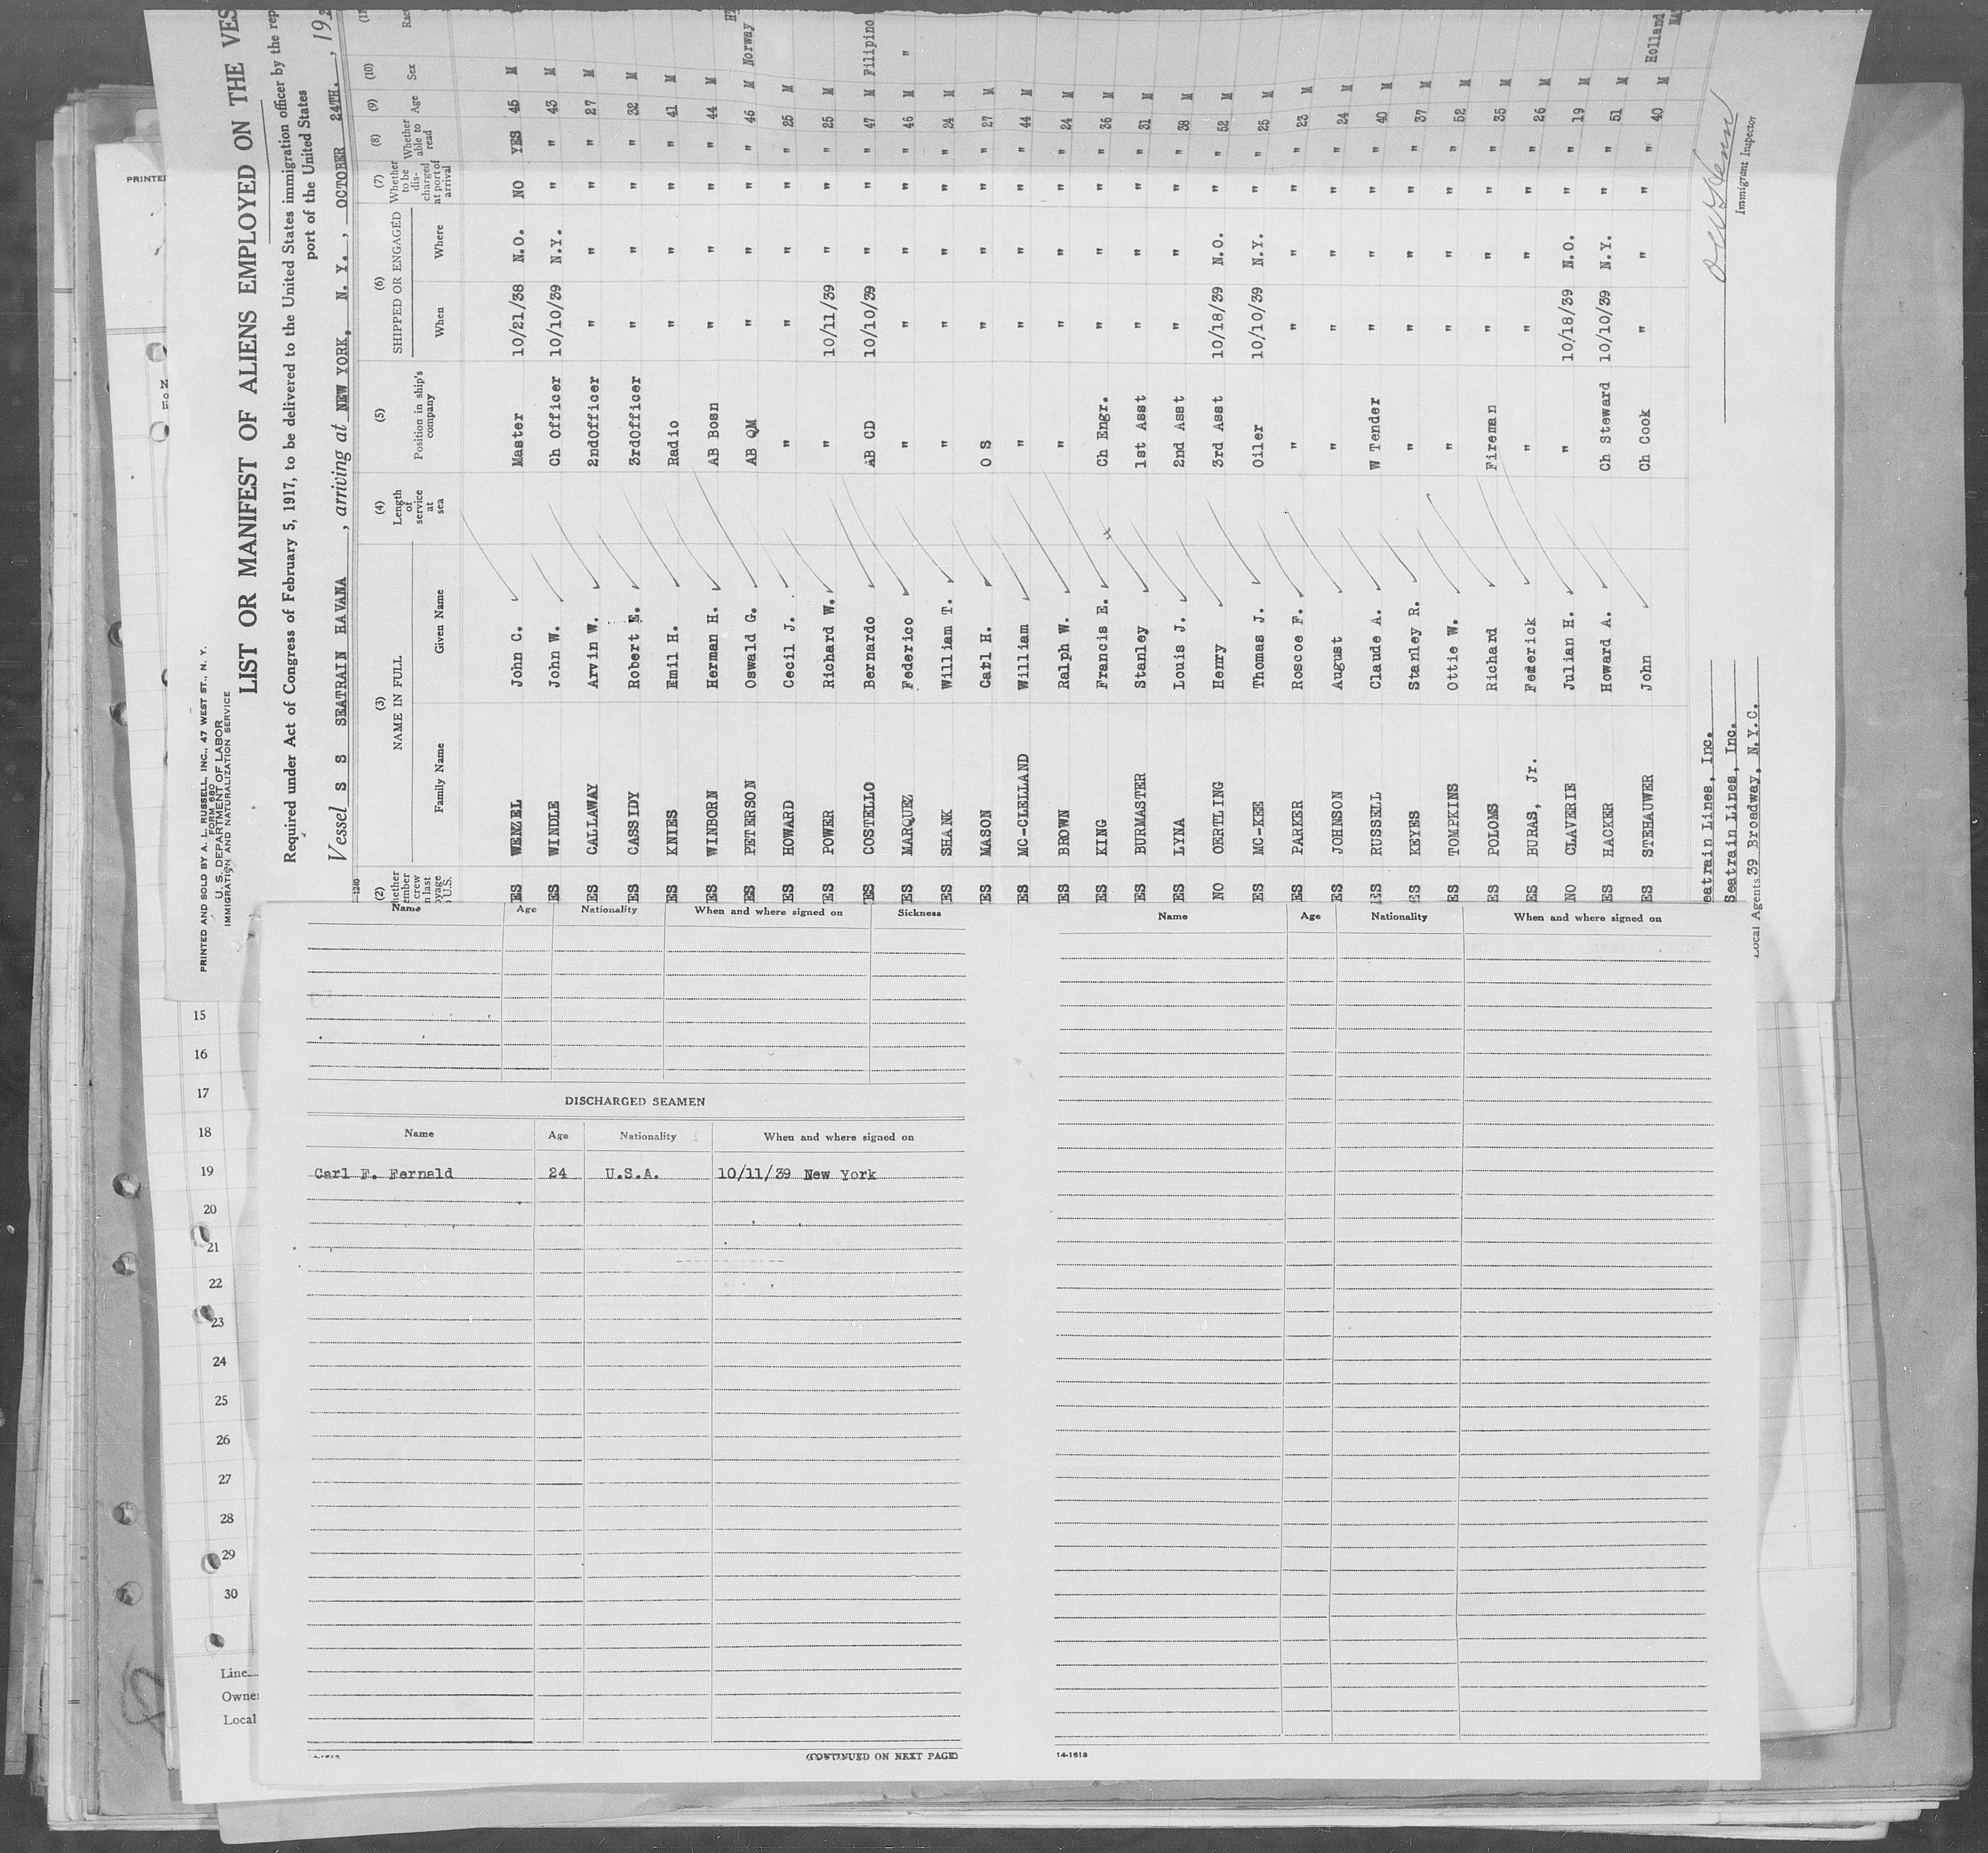 PRINTED AND SOLD BY A. L. RUSSELL, INC., 47 WEST ST., N. Y.
FORM 680
U. S. DEPARTMENT OF LABOR
IMMIGRATION AND NATURALIZATION SERVICE
LIST OR MANIFEST OF ALIENS EMPLOYED ON THE VES
Required under Act of Congress of February 5, 1917, to be delivered to the United States immigration officer by the rep
port of the United States
Vessel S S SEATRAIN HAVANA, arriving at NEW YORK, N. Y., OCTOBER 24TH., 19
(2) (3) (4) (5) (6) (7) (8) (9) (10)
NAME IN FULL Length of service at sea Position in ship's company SHIPPED OR ENGAGED Whether to be discharged at port of arrival Whether able to read Age Sex
Family Name Given Name When Where
ES WENZEL John C. Master 10/21/38 N.O. NO YES 45 M
ES WINDLE John W. Ch Officer 10/10/39 N.Y. " " 43 M
ES CALLAWAY Arvin W. 2ndOfficer " " " " 27 M
ES CASSIDY Robert E. 3rdOfficer " " " " 32 M
ES KNIES Emil H. Radio " " " " 41 M
ES WINBORN Herman H. AB Bosn " " " " 44 M
ES PETERSON Oswald G. AB QM " " " " 46 M Norway
ES HOWARD Cecil J. " " " " " 25 M
ES POWER Richard W. " 10/11/39 " " " 25 M
ES COSTELLO Bernardo AB CD 10/10/39 " " " 47 M Filipino
ES MARQUEZ Federico " " " " " 46 M "
ES SHANK William T. " " " " " 24 M
ES MASON Carl H. O S " " " " 27 M
ES MC-CLELLAND William " " " " " 44 M
ES BROWN Ralph W. " " " " " 24 M
ES KING Francis E. Ch Engr. " " " " 36 M
ES BURMASTER Stanley 1st Asst " " " " 31 M
ES LYNA Louis J. 2nd Asst " " " " 38 M
NO OERTLING Henry 3rd Asst 10/18/39 N.O. " " 52 M
ES MC-KEE Thomas J. Oiler 10/10/39 N.Y. " " 25 M
ES PARKER Roscoe F. " " " " " 23 M
ES JOHNSON August " " " " " 24 M
ES RUSSELL Claude A. W Tender " " " " 40 M
ES KEYES Stanley R. " " " " " 37 M
ES TOMPKINS Ottie W. " " " " " 52 M
ES POLOMS Richard Fireman " " " " 35 M
ES BURAS, Jr. Federick " " " " " 26 M
NO CLAVERIE Julian H. " 10/18/39 N.O. " " 19 M
ES HACKER Howard A. Ch Steward 10/10/39 N.Y. " " 51 M
ES STEHAUWER John Ch Cook " " " " 40 M Holland
eatrain Lines, Inc.
Seatrain Lines, Inc.
Local Agents 39 Broadway, N.Y.C.
Immigrant Inspector
PRINTE
15
16
17
18
19
20
21
22
23
24
25
26
27
28
29
30
Line
Owne
Local
Name Age Nationality When and where signed on Sickness
DISCHARGED SEAMEN
Name Age Nationality When and where signed on
Carl F. Fernald 24 U.S.A. 10/11/39 New York
(CONTINUED ON NEXT PAGE)
Name Age Nationality When and where signed on
14-1618